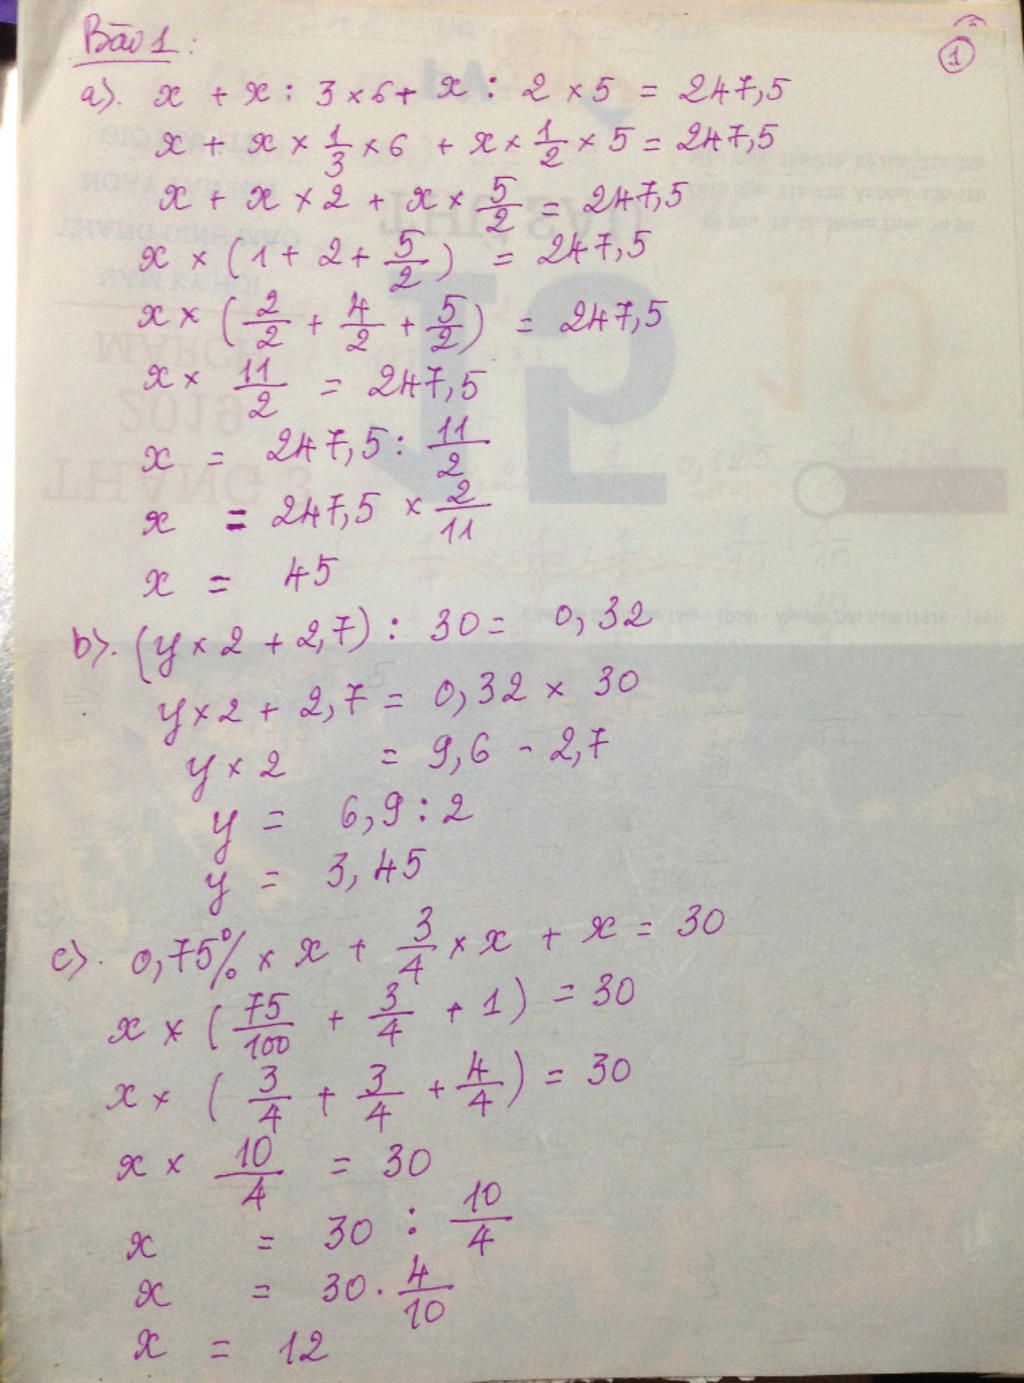 Bài 1:
1
a). x + x : 3 × 6 + x : 2 × 5 = 247,5
x + x × 1/3 × 6 + x × 1/2 × 5 = 247,5
x + x × 2 + x × 5/2 = 247,5
x × (1 + 2 + 5/2) = 247,5
x × (2/2 + 4/2 + 5/2) = 247,5
x × 11/2 = 247,5
x = 247,5 : 11/2
x = 247,5 × 2/11
x = 45
b). (y × 2 + 2,7) : 30 = 0,32
y × 2 + 2,7 = 0,32 × 30
y × 2 = 9,6 - 2,7
y = 6,9 : 2
y = 3,45
c). 0,75% × x + 3/4 × x + x = 30
x × (75/100 + 3/4 + 1) = 30
x × (3/4 + 3/4 + 4/4) = 30
x × 10/4 = 30
x = 30 : 10/4
x = 30 . 4/10
x = 12